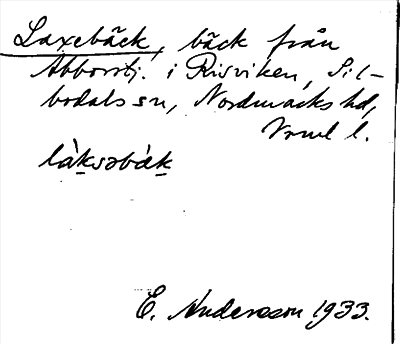 Laxebäck, bäck från
Abborrtj. i Risviken, Sil-
bodals sn, Nordmarks hd,
Vrml l.
là̀ksəbäk
E. Andersson 1933.